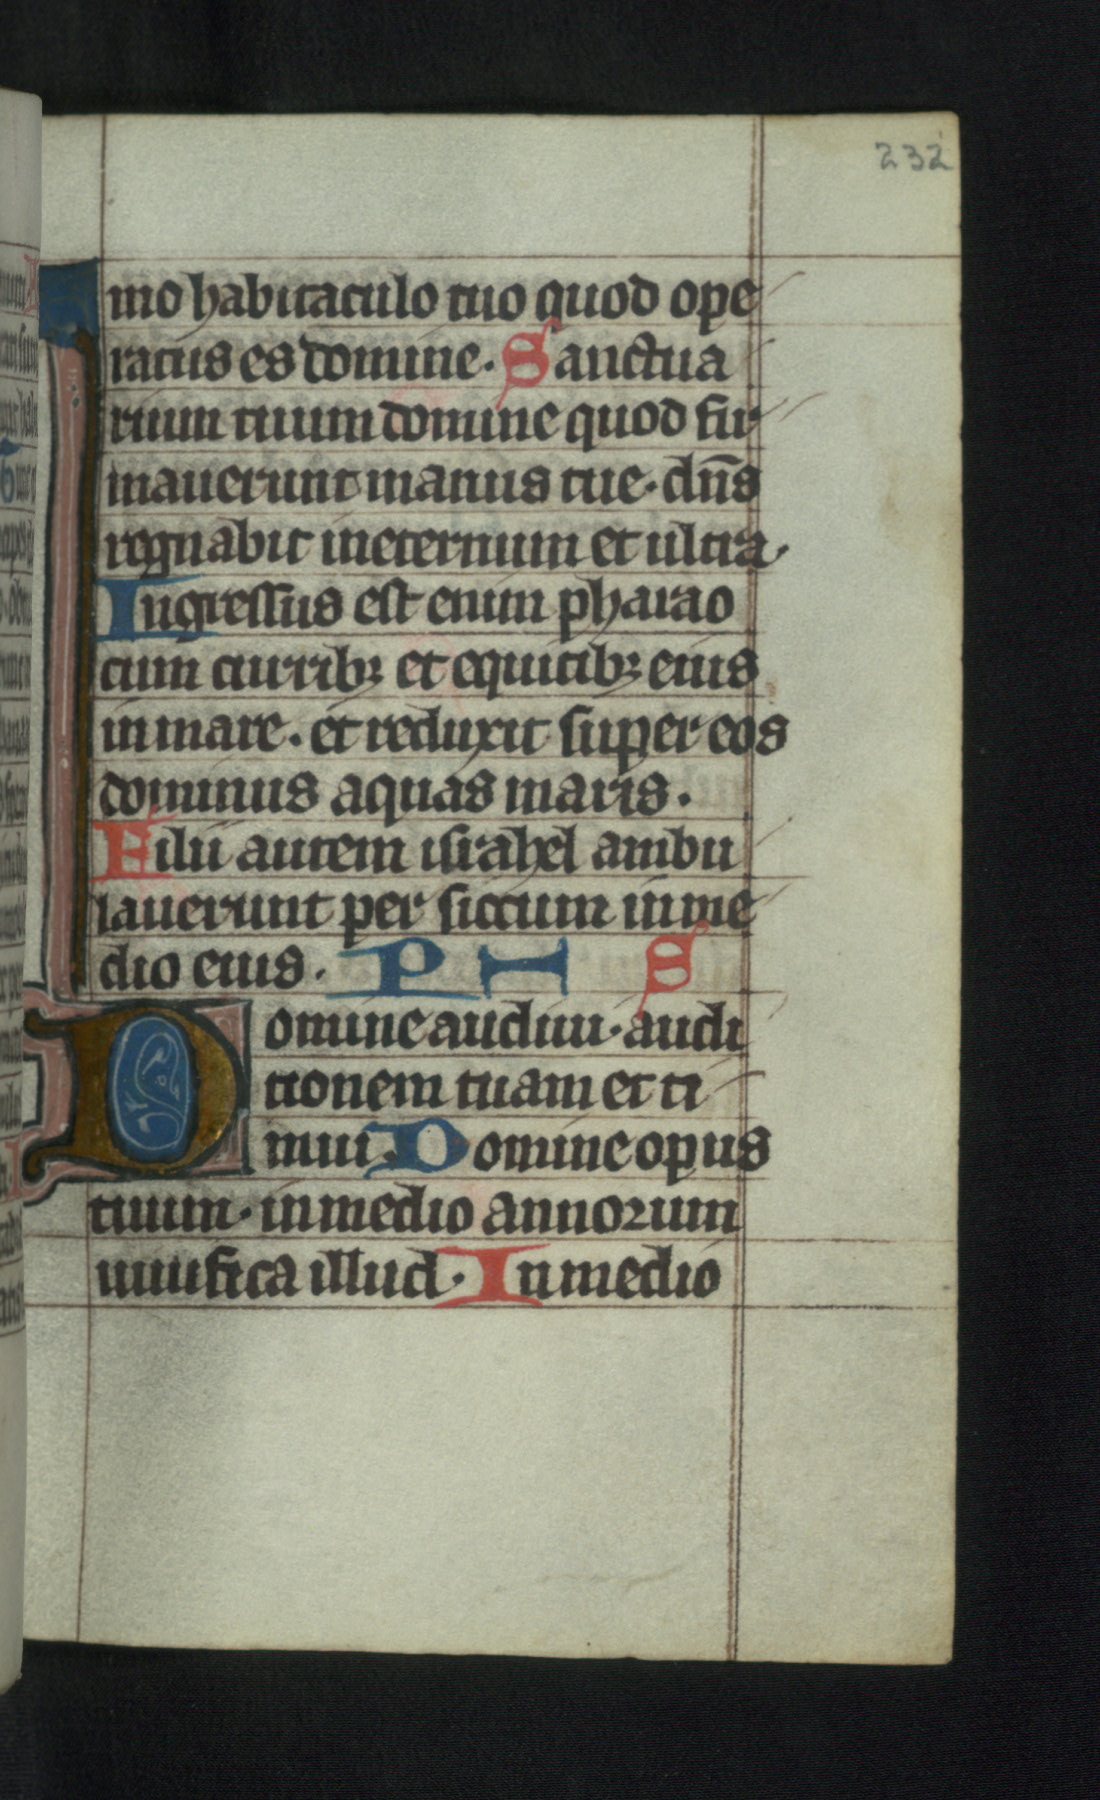 232
mo habitaculo tuo quod ope
ratus es domine. Sanctua
rium tuum domine quod fir
mauerunt manus tue. dn̄s
regnabit in eternum et ultra.
Ingressus est enim pharao
cum curribꝫ et equitibꝫ eius
in mare. et reduxit super eos
dominus aquas maris.
Filii autem israhel ambu
lauerunt per siccum in me
dio eius. P S
Domine audiui. audi
tionem tuam et ti
mui. Domine opus
tuum. in medio annorum
uiuifica illud. In medio